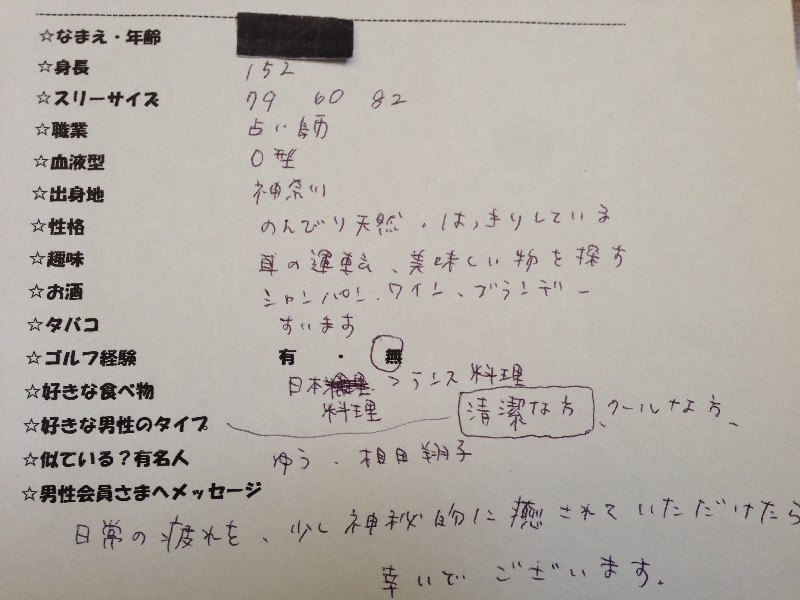 ☆なまえ・年齢
☆身長 152
☆スリーサイズ 79 60 82
☆職業 占い師
☆血液型 O型
☆出身地 神奈川
☆性格 のんびり天然・はっきりしている
☆趣味 車の運転、美味しい物を探す
☆お酒 シャンパン、ワイン、ブランデー
☆タバコ すいます
☆ゴルフ経験 有 ・ 無
☆好きな食べ物 日本 フランス料理
料理
☆好きな男性のタイプ 清潔な方、クールな方、
☆似ている?有名人 ゆう、相田翔子
☆男性会員さまへメッセージ
日常の疲れを、少し神秘的に癒されていただけたら
幸いでございます。